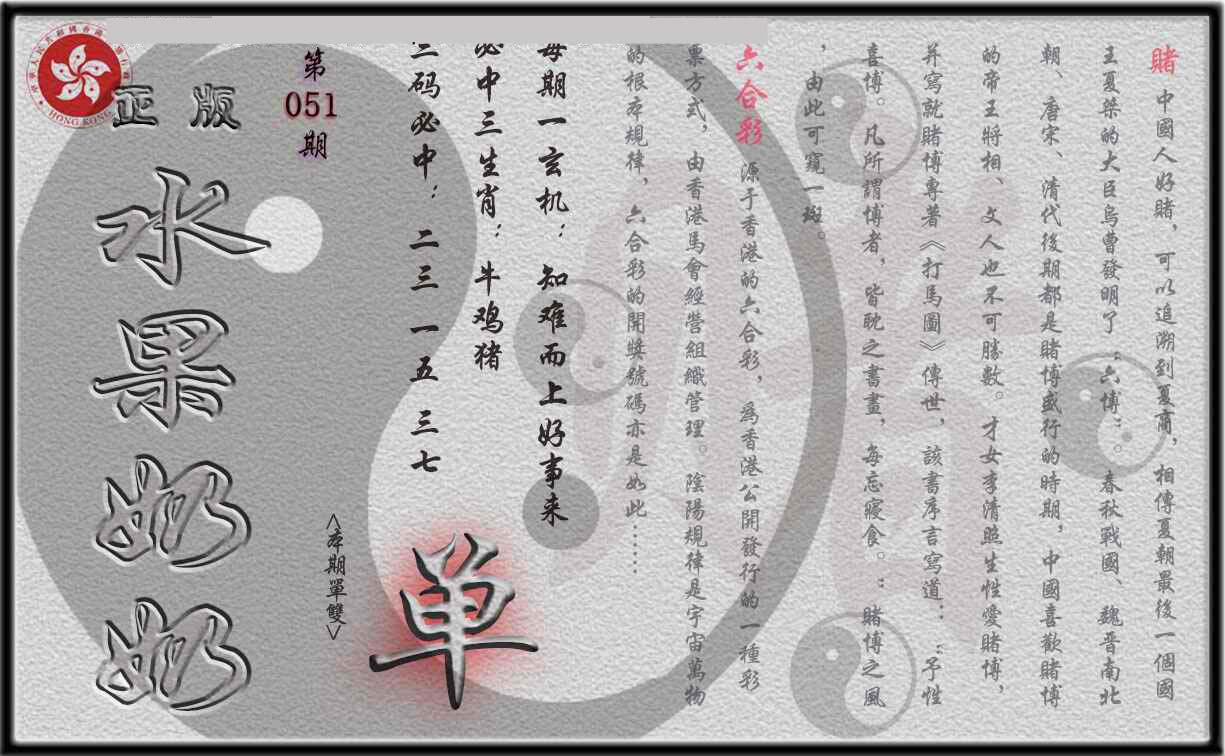 賭 中國人好賭，可以追溯到夏商，相傳夏朝最後一個國
王夏桀的大臣烏曹發明了“六博”。春秋戰國、魏晋南北
朝、唐宋、清代後期都是賭博盛行的時期，中國喜歡賭博
的帝王將相、文人也不可勝數。才女李清照生性愛賭博，
并寫就賭博專著《打馬圖》傳世，該書序言寫道：“予性
喜博。凡所謂博者，皆耽之書畫，每忘寢食。”賭博之風
，由此可窺一斑。
六合彩 源于香港的六合彩，為香港公開發行的一種彩
票方式，由香港馬會經營組織管理。陰陽規律是宇宙萬物
的根本規律，六合彩的開獎號碼亦是如此……
每期一玄机：知难而上好事来
必中三生肖：牛鸡猪
三码必中：二三 一五 三七
<本期單雙>
单
第
051
期
正版
水果奶奶
HONG KONG